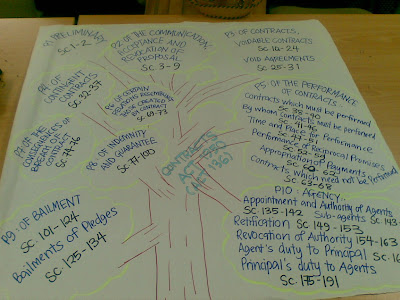 P1: PRELIMINARY
Sc. 1-2
P2: OF THE COMMUNICATION,
ACCEPTANCE AND
REVOCATION OF
PROPOSAL
Sc 3-9
P3: OF CONTRACTS,
VOIDABLE CONTRACTS
Sc. 10-24
VOID AGREEMENTS
Sc 25-31
P4: OF
CONTINGENT
CONTRACTS
Sc. 32-37
P5: OF THE PERFORMANCE
OF CONTRACTS
Contracts which must be performed
Sc. 38-40
By whom Contracts must be performed
Time and Place for Performance
Performance of Reciprocal Promises
Appropriation of Payments
Contracts which need not be Performed
Sc 63-68
P6: OF CERTAIN
RELATIONS RESEMBLING
THOSE CREATED
BY CONTRACT
Sc 69-73
P7: OF THE
CONSEQUENCES OF
BREACH OF
CONTRACT
Sc 74-76
P8: OF INDEMNITY
AND GUARANTEE
Sc 77-100
CONTRACTS
ACT 1950
(ACT 136)
P9: OF BAILMENT
Sc. 101-124
Bailments of Pledges
Sc. 125-134
P10: AGENCY
Appointment and Authority of Agents
Sc 135-142 Sub-agents Sc 143-
Ratification Sc 149-153
Revocation of Authority 154-163
Agent's duty to Principal Sc. 16
Principal's duty to Agents
Sc. 175-191